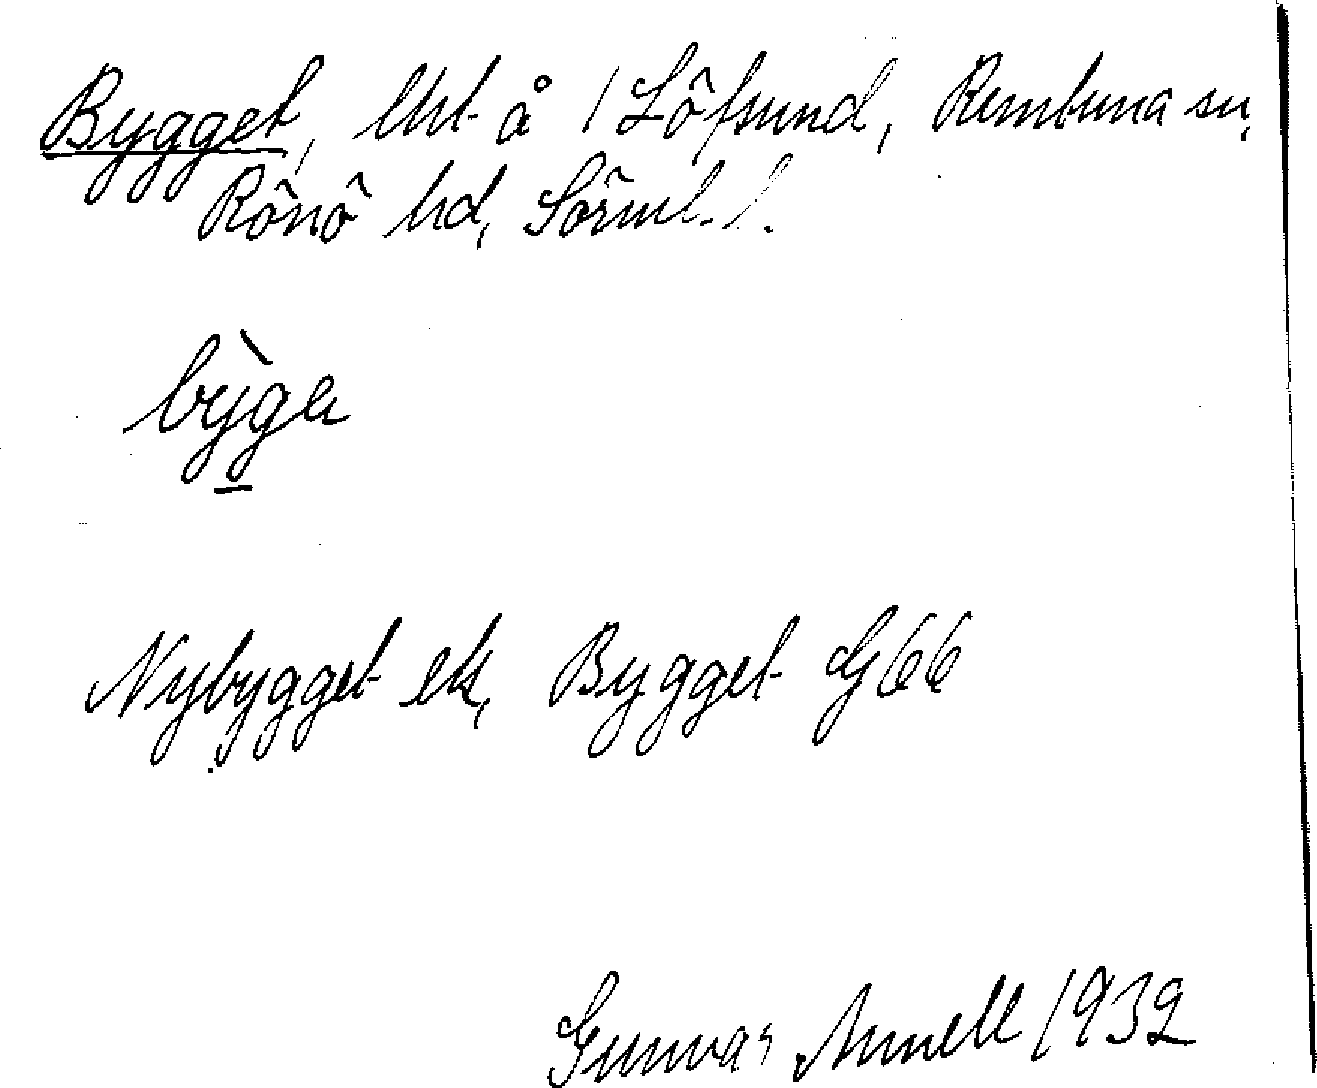 Bygget, lht å 1 Löfsund, Rentuna sn,
Rönö hd, Sörml. l.
bỳga
Nybygget ek, Bygget G 66
Gunnar Annell 1932